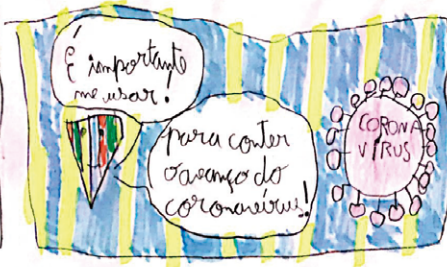 É importante
me usar!
para conter
o avanço do
coronavirus!
CORONA
VÍRUS